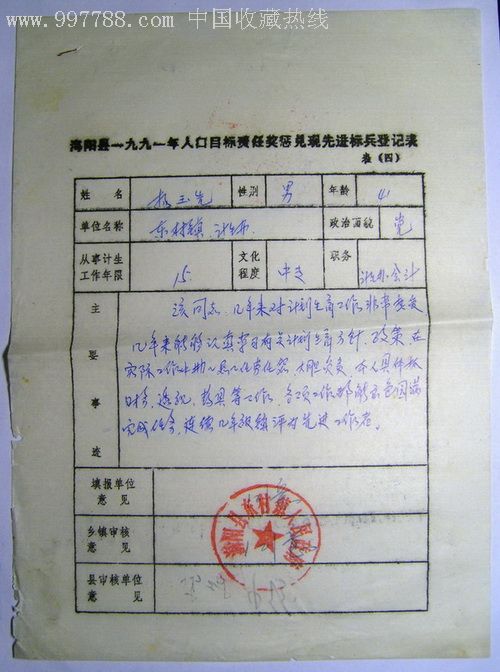 www.997788.com 中国收藏热线
海阳县一九九一年人口目标责任奖惩兑现先进标兵登记表
表（四）
姓名 玉先 性别 男 年龄 41
单位名称 东村镇 计生办 政治面貌 党
从事计生工作年限 15 文化程度 中专 职务 计生办会计
主要事迹
该同志，几年来对计划生育工作非常
几年来能够认真学习有关计划生育方针、政策在
实际工作上 大胆负责 本人具体抓
统计、药具等工作，各项工作都能出色圆满
完成任务，连续几年被镇评为先进工作者。
填报单位意见
乡镇审核意见
海阳县东村镇人民政府
县审核单位意见